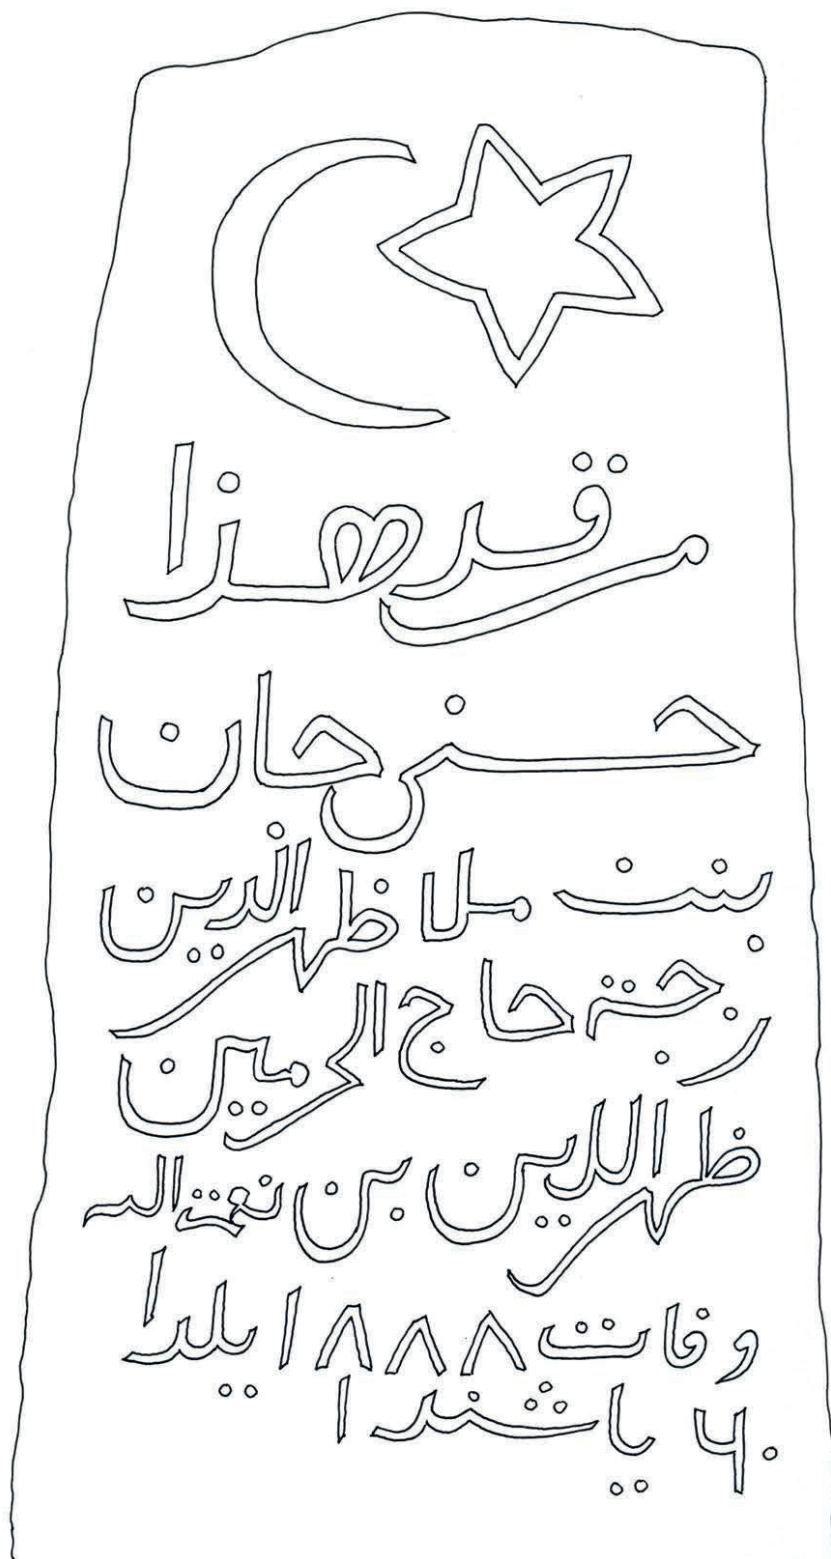 مرقد هذا
حنى حان
بنت ملا ظهر الذين
زجة حاج الحرمين
ظهر الدين بن نعمة الله
وفات ١٨٨٨ يلدا
۶۰ ياشندا